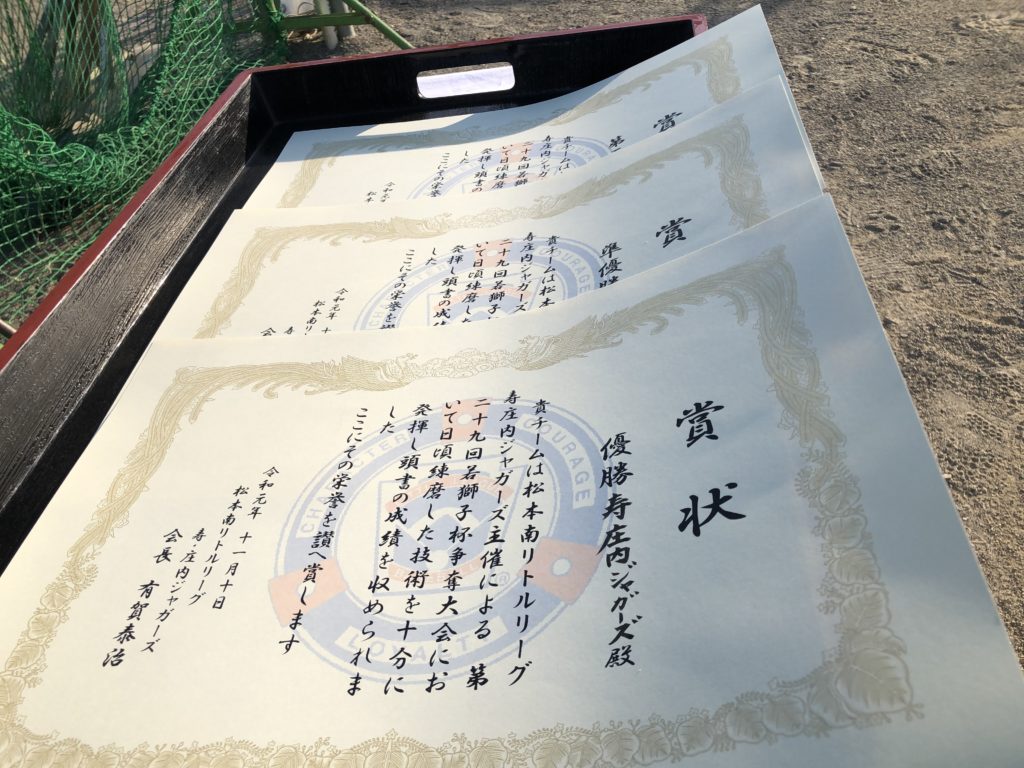 賞状
優勝 寿庄内ジャガーズ殿
貴チームは松本南リトルリーグ
寿庄内ジャガーズ主催による 第
二十九回若獅子杯争奪大会にお
いて日頃練磨した技術を十分に
発揮し頭書の成績を収められま
した
ここにその栄誉を讃へ賞します
令和元年 十一月十日
松本南リトルリーグ
寿庄内ジャガーズ
会長 有賀泰治
CHARACTER
COURAGE
LOYALTY
賞
準優勝
貴チームは松本
寿庄内ジャガーズ
二十九回若獅子
いて日頃練磨した
発揮し頭書の成績
した
ここにその栄誉を讃
令和元年 十
松本南リト
寿
会
賞
第
貴チームは
寿庄内ジャガ
二十九回若獅
いて日頃練磨
発揮し頭書の
した
ここにその栄誉
令和元
松本